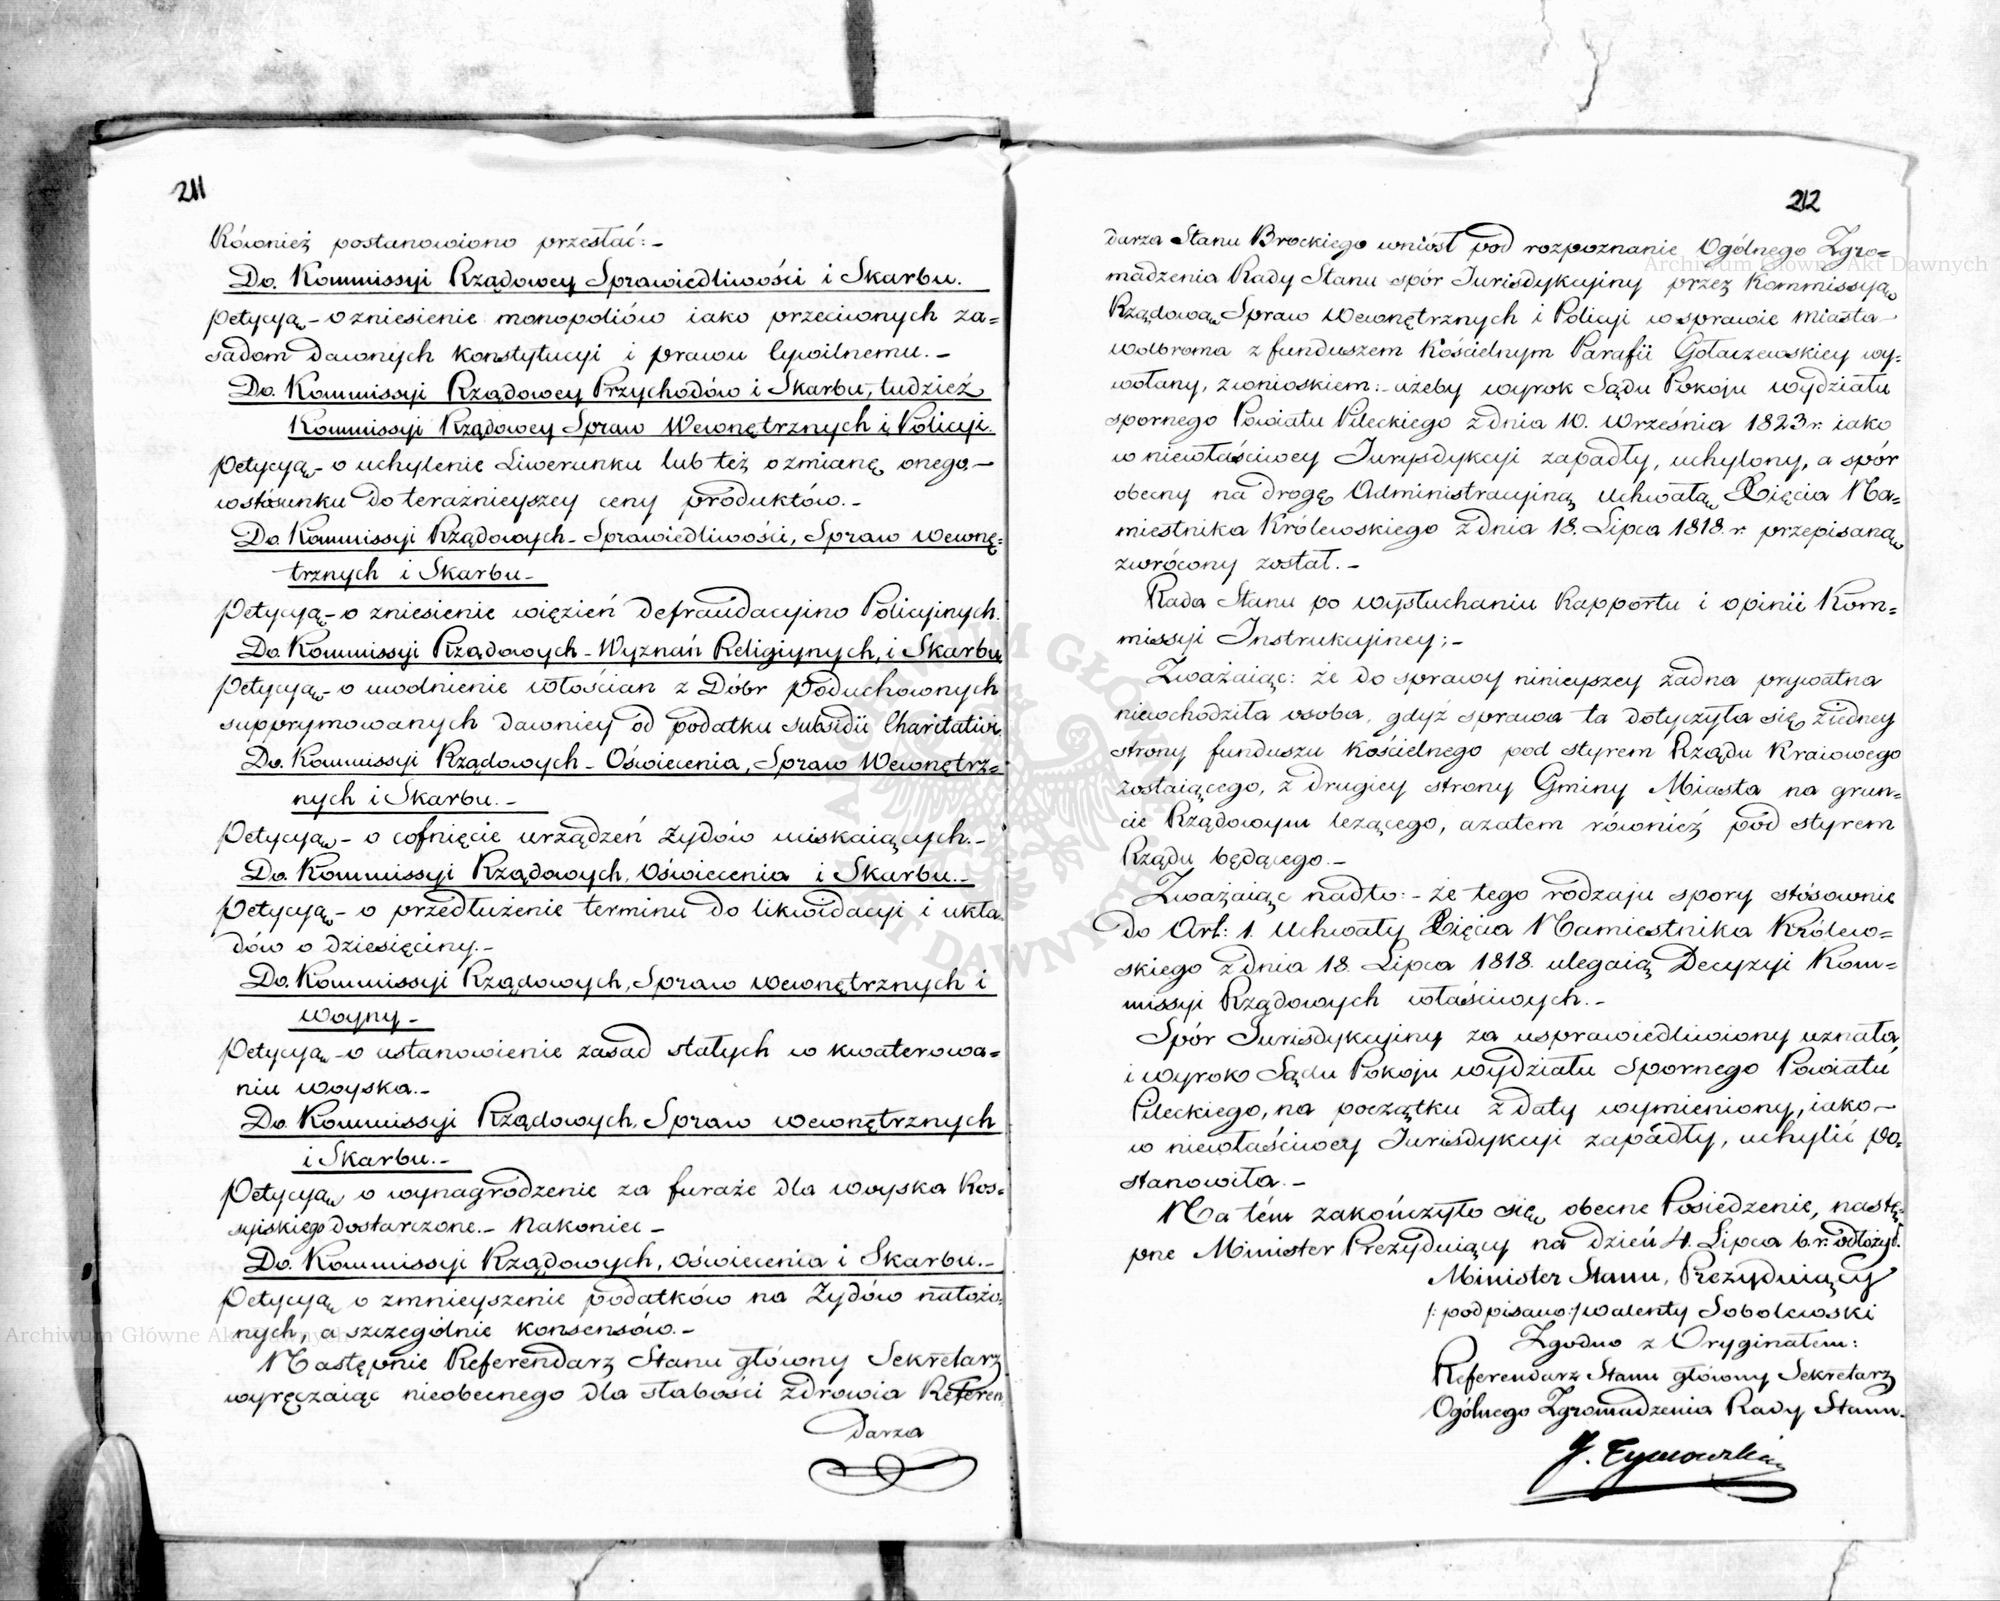 211
Również postanowiono przesłać:-
Do Kommissyi Rządowey Sprawiedliwości i Skarbu.
petycyą - o zniesienie monopoliów iako przeciwnych za=
sadom dawnych konstytucyi i prawu Cywilnemu. -
Do Kommissyi Rządowey Przychodów i Skarbu, tudzież
Kommissyi Rządowey Spraw Wewnętrznych i Policyi.
petycyą - o uchylenie Liwerunku lub też o zmianę onego -
w stósunku do teraźnieyszey ceny produktów. -
Do Kommissyi Rządowych - Sprawiedliwości, Spraw Wewnę=
trznych i Skarbu -
petycyą - o zniesienie więzień defraudacyino Policyinych.
Do Kommissyi Rządowych - Wyznań Religiynych, i Skarbu
petycyą - o uwolnienie włościan z Dóbr poduchownych
supprymowanych dawniey od podatku subsidii Charitativi.
Do Kommissyi Rządowych - Oświecenia, Spraw Wewnętrz=
nych i Skarbu. -
petycyą - o cofnięcie urządzeń Żydów uciskaiących. -
Do Kommissyi Rządowych, Oświecenia i Skarbu. -
petycyą - o przedłużenie terminu do likwidacyi i ukła
dów o dziesięciny. -
Do Kommissyi Rządowych, Spraw Wewnętrznych i
Woyny -
petycyą - o ustanowienie zasad stałych w kwaterowa=
niu woyska. -
Do Kommissyi Rządowych, Spraw Wewnętrznych
i Skarbu. -
petycyą o wynagrodzenie za furaże dla woyska Ros=
syiskiego dostarczone. - Nakoniec -
Do Kommissyi Rządowych, Oświecenia i Skarbu. -
petycyą o zmnieyszenie podatków na Żydów nałożo=
nych, a szczególnie konsensów. -
Następnie Referendarz Stanu główny Sekretarz
wyręczaiąc nieobecnego dla słabości zdrowia Referen
darza
212
darza Stanu Brockiego wniósł pod rozpoznanie Ogólnego Zgro=
madzenia Rady Stanu spór Iurisdykcyiny przez Kommissyą
Rządową Spraw Wewnętrznych i Policyi w sprawie miasta -
Wolbroma z funduszem Kościelnym Parafii Gołaczewskiey wy=
wołany, z wnioskiem: - ażeby wyrok Sądu Pokoju wydziału
spornego Powiatu Pileckiego z dnia 10. Września 1823 r. iako
w niewłaściwey Iurysdykcyi zapadły, uchylony, a spór
obecny na drogę Administracyiną Uchwałą Xięcia Na=
miestnika Królewskiego z dnia 18. Lipca 1818. r. przepisaną
zwrócony został. -
Rada Stanu po wysłuchaniu Rapportu i opinii Kom=
missyi Instrukcyiney; -
Zważaiąc: że do sprawy ninieyszey żadna prywatna
niewchodziła osoba, gdyż sprawa ta dotyczyła się ziedney
strony funduszu Kościelnego pod styrem Rządu Kraiowego
zostaiącego, z drugiey strony Gminy Miasta na grun=
cie Rządowym leżącego, a zatem również pod styrem
Rządu będącego. -
Zważaiąc nadto: - że tego rodzaju spory stósownie
do Art: 1. Uchwały Xięcia Namiestnika Królew=
skiego z dnia 18. Lipca 1818. ulegaią Decyzyi Kom=
missyi Rządowych właściwych. -
Spór Iurisdykcyiny za usprawiedliwiony uznała
i wyrok Sądu Pokoju wydziału Spornego Powiatu
Pileckiego, na początku z daty wymieniony, iako -
w niewłaściwey Iurisdykcyi zapadły, uchylić po=
stanowiła. -
Na tém zakończyło się obecne Posiedzenie, nastę=
pne Minister Prezyduiący na dzień 4. Lipca b. r. odłożył.
Minister Stanu, Prezyduiący
/: podpisano :/ Walenty Sobolewski
Zgodno z Oryginałem:
Referendarz Stanu główny Sekretarz
Ogólnego Zgromadzenia Rady Stanu.
J. Tymowski
Archiwum Główne Akt Dawnych
Archiwum Główne Akt Dawnych
ARCHIWUM GŁÓWNE AKT DAWNYCH